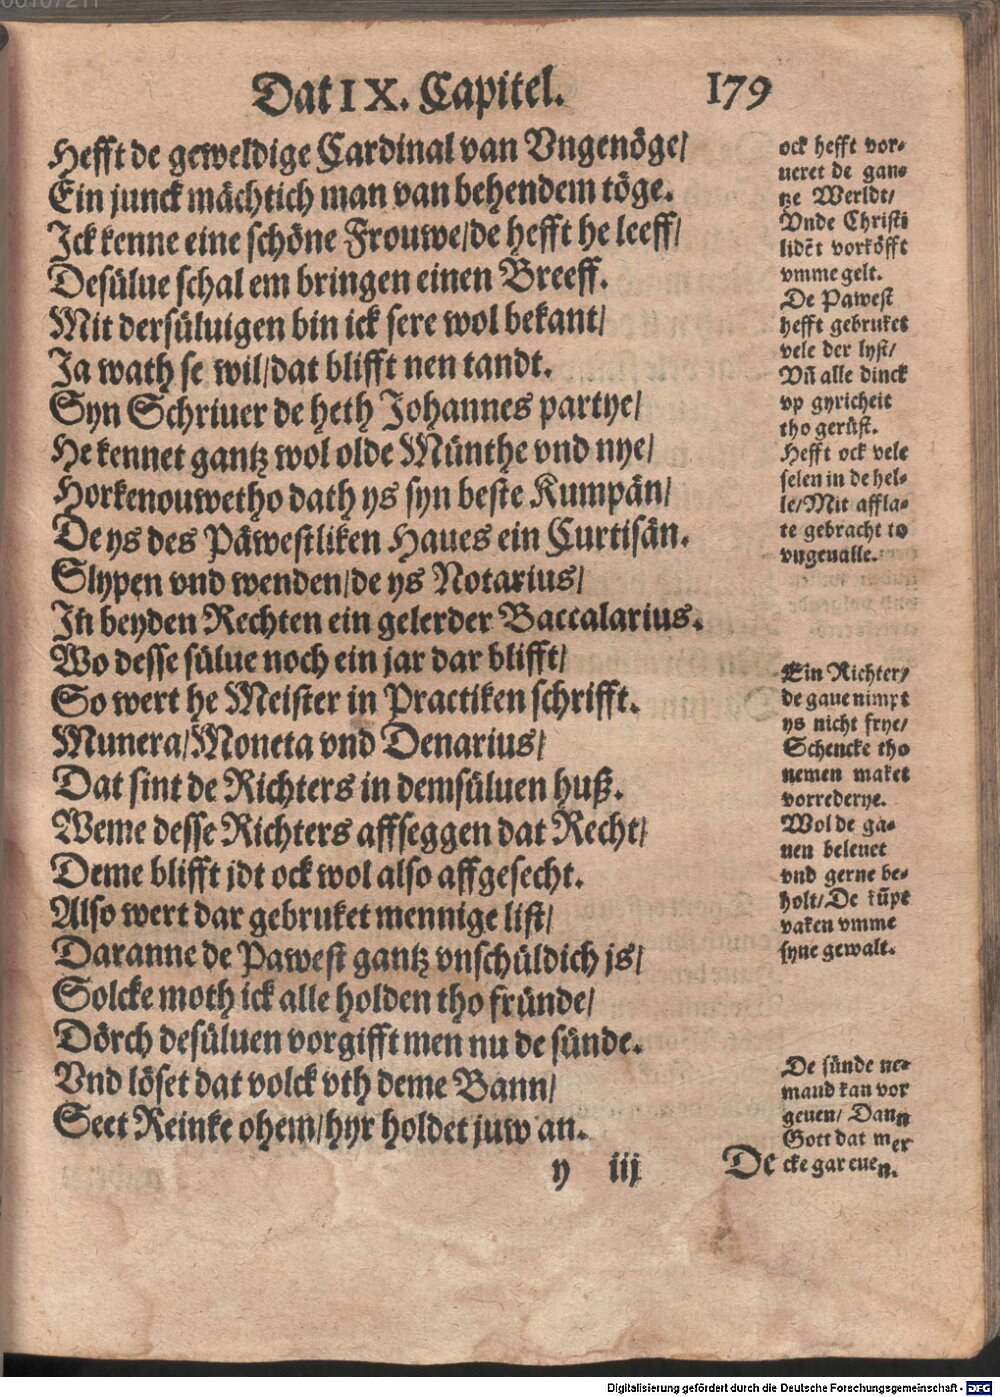 Dat IX. Capitel. 179
Hefft de geweldige Cardinal van Vngenöge/
Ein junck mächtich man van behendem töge.
Ick kenne eine schöne Frouwe/de hefft he leeff/
Desülue schal em bringen einen Breeff.
Mit dersüluigen bin ick sere wol bekant/
Ja wath se wil/dat blifft nen tandt.
Syn Schriuer de heth Johannes partye/
He kennet gantz wol olde Münthe vnd nye/
Horkenouwetho dath ys syn beste Kumpän/
De ys des Päwestliken Haues ein Curtisän.
Slypen vnd wenden/de ys Notarius/
Jn̄ beyden Rechten ein gelerder Baccalarius.
Wo desse sülue noch ein jar dar blifft/
So wert he Meister in Practiken schrifft.
Munera/Moneta vnd Denarius/
Dat sint de Richters in demsüluen huß.
Weme desse Richters affseggen dat Recht/
Deme blifft jdt ock wol also affgesecht.
Also wert dar gebruket mennige list/
Daranne de Pawest gantz vnschüldich js/
Solcke moth ick alle holden tho fründe/
Dörch desüluen vorgifft men nu de sünde.
Vnd löset dat volck vth deme Bann/
Seet Reinke ohem/hyr holdet juw an.
y iij De
ock hefft vor-
ueret de gan-
tze Werldt/
Vnde Christi
lidēt vorköfft
vmme gelt.
De Pawest
hefft gebruket
vele der lyst/
Vn̄ alle dinck
vp gyricheit
tho gerüst.
Hefft ock vele
selen in de hel-
le/Mit affla-
te gebracht to
vngeualle.
Ein Richter/
de gaue nimpt
ys nicht frye/
Schencke tho
nemen maket
vorrederye.
Wol de ga-
uen beleuet
vnd gerne be-
holt/De kūpt
vaken vmme
syne gewalt.
De sünde ne-
mand kan vor
geuen/ Dann
Gott dat mer
cke gar euen.
Digitalisierung gefördert durch die Deutsche Forschungsgemeinschaft - DFG